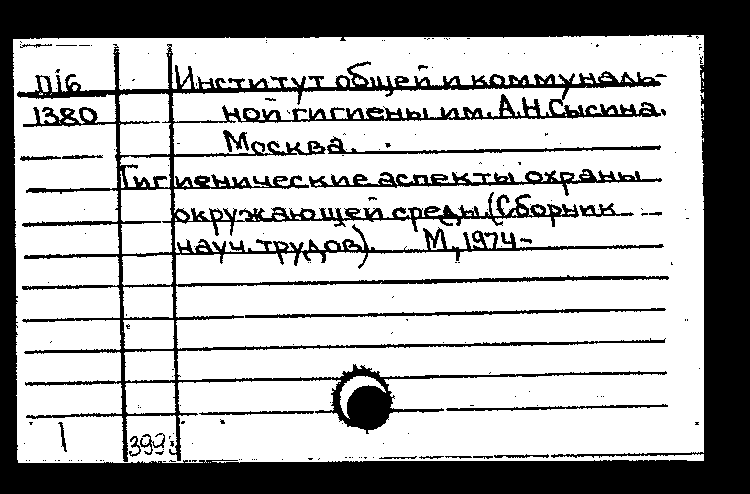 Пi6 Институт общей и коммуналь-
1380 ной гигиены им. А.Н.Сысина.
Москва.
Гигиенические аспекты охраны
окружающей среды. (Сборник
науч. трудов). М., 1974-
1 399